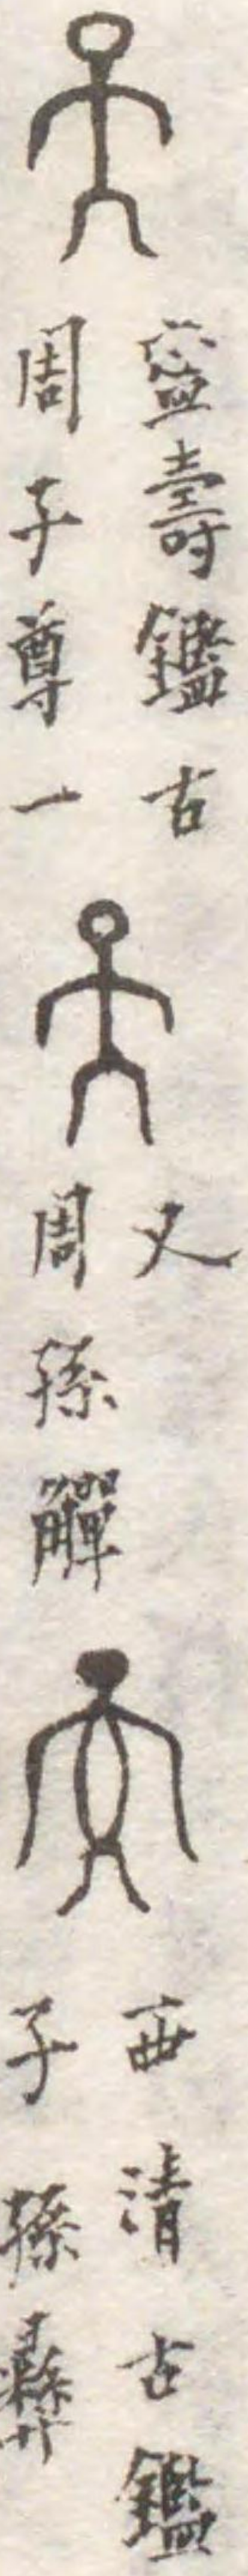 寧壽鑑古
周子尊一
又
周孫觶
西清古鑑
子孫彝